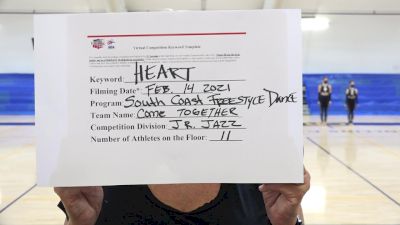 Virtual Competition Keyword Template
Keyword: HEART
Filming Date*: FEB. 14 2021
Program: South Coast FREESTYLE DANCE
Team Name: Come TOGETHER
Competition Division JR. JAZZ
Number of Athletes on the Floor: 11